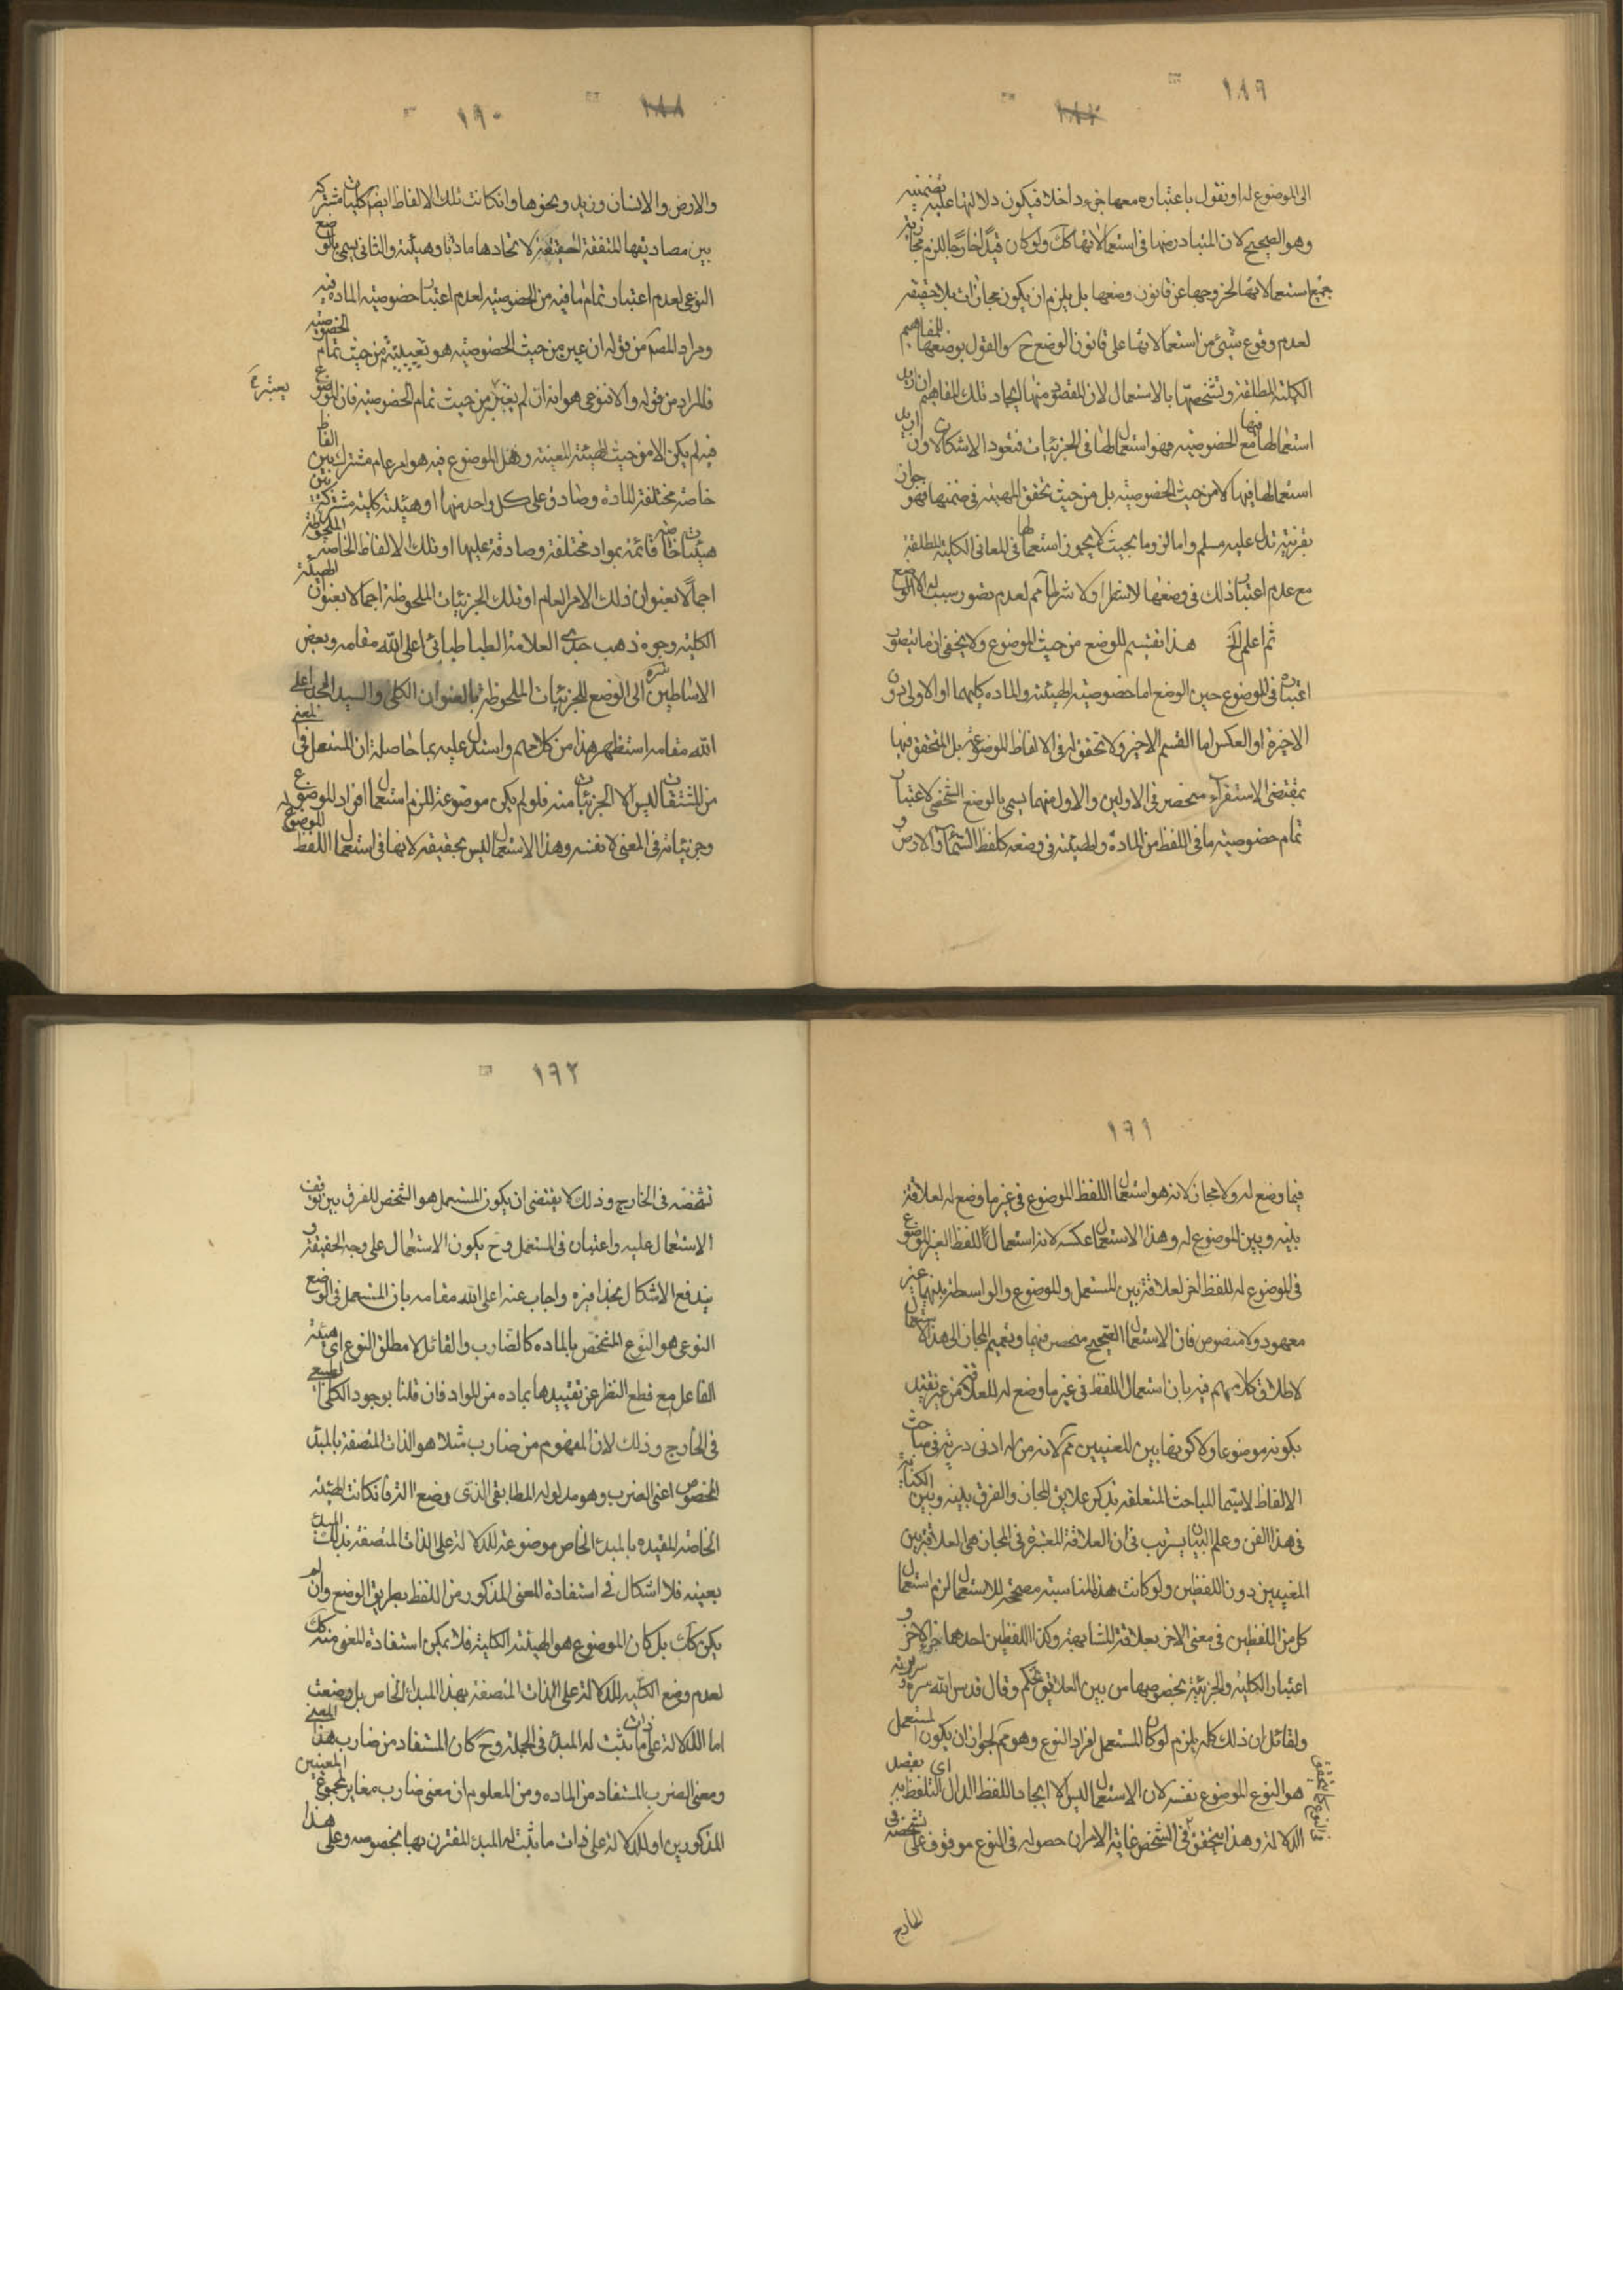 ١٨٩
١٨٧
الى الموضوع له او نقول باعتباره معها جزء داخلا فيكون دلالتها عليه تضمنيه
وهو الصحيح لان المتبادر منها فى استعمالاتها كك ولو كان قيدا خارجا للزم مجازية
جميع استعمالاتها لخروجها عن قانون وضعها بل يلزم ان يكون مجازات بلا حقيقه
لعدم وقوع شئ من استعمالاتها على قانون الوضع ح والقول بوضعها للمفاهيم
الكلية المطلقة وتشخصها بالاستعمال لان المقصود منها ايجاد تلك المفاهيم ان اريد
استعمالها فيها مع الخصوصيه فهو استعمال لها فى الجزئيات فتعود الاشكال وان اريد
استعمالها فيها لا من حيث الخصوصيه بل من حيث تحقق المهيه فى ضمنها فهو جوازه
بقرينة تدل عليه مسلم واما لزوما بحيث لا يجوز استعمالها فى المعانى الكلية المطلقة
مع عدم اعتبار ذلك فى وضعها لا شطرا ولا شرطا مم لعدم تصور سبب له الا الوضع
ثم اعلم الخ هذا تقسيم للوضع من حيث الموضوع ولا يخفى ان ما يتصور
اعتباره فى الموضوع حين الوضع اما خصوصيه الهيئه والماده كليهما او الاولى دون
الاخيرة او العكس اما القسم الاخير ولا تحقق له فى الالفاظ الموضوعة بل المتحقق فيها
بمقتضى الاستقراء منحصر فى الاولين والاول منهما يسمى بالوضع الشخصى لاعتبار
تمام خصوصيه ما فى اللفظ من المادة والهيئه فى وضعه كلفظ السماء والارض و
١٨٨
١٩٠
والارض والانسان وزيد ونحوها وان كانت تلك الالفاظ ايضا كليات مشتركة
بين مصاديقها المتفقة الحقيقة لاتحادها مادتا وهيئة والثانى يسمى بالوضع
النوعى لعدم اعتبار تمام ما فيه من الخصوصيه لعدم اعتبار خصوصيه الماده فيه
ومراد المصم من قوله ان عين من حيث الخصوصيه هو تعيينه من حيث تمام الخصوصيه
فالمراد من قوله والا فنوعى هو انه ان لم يعتبر من حيث تمام الخصوصيه فان الموضوع
يعتبره
فيه لم يكن الا من حيث الهيئة المعينة وهل الموضوع فيه هو امر عام مشترك بين الفاظ
خاصة مختلفة المادة وصادق على كل واحد منها او هيئة كلية مشتركة بين
هيئات خاصه قائمة بمواد مختلفة وصادقة عليها او تلك الالفاظ الخاصه الملحوظة
اجمالا بعنوان ذلك الامر العام او تلك الجزئيات الملحوظة اجمالا بعنوان الهيئة
الكلية وجوه ذهب جدى العلامة الطباطبائى اعلى الله مقامه وبعض
الاساطين سره الى الوضع للجزئيات الملحوظة بالعنوان الكلى والسيد المجد اعلى
الله مقامه استظهر هذا من كلامهم واستدل عليه بما حاصله ان المستعمل فى المعنى
من المشتقات ليس الا الجزئيات منه فلو لم يكن موضوعة للزم استعمال افراد الموضوع له
وجزئياته فى المعنى لا نفسه وهذا الاستعمال ليس بحقيقة لانها فى استعمال اللفظ الموضوع
١٩١
فيما وضع له ولا مجاز لانه هو استعمال اللفظ الموضوع فى غير ما وضع له لعلاقة
بينه وبين الموضوع له وهذا الاستعمال عكسه لانه استعمال اللفظ الغير الموضوع
فى الموضوع له للفظ اخر لعلاقة بين المستعمل والموضوع والواسطة بينهما غير
معهود ولا منصوص فان الاستعمال الصحيح منحصر فيهما وتعميم المجاز الى هذا الاستعمال
لاطلاق كلامهم فيه بان استعمال اللفظ فى غير ما وضع له للعلاقة من غير تقييد
بكونه موضوعا ولا كونها بين المعنيين مم لانه من له ادنى دربة فى مباحث
الالفاظ لا سيما المباحث المتعلقه بذكر علايق المجاز والفرق بينه وبين الكناية
فى هذا الفن وعلم البيان يرتب فى ان العلاقة المعتبرة فى المجاز هى العلاقة بين
المعنيين دون اللفظين ولو كانت هذه المناسبة مصححة للاستعمال لزم استعمال
كل من اللفظين فى معنى الاخر بعلاقة المشابهة وكذا اللفظين احدهما جزء الاخر و
اعتبار الكلية والجزئية بخصوصها من بين العلايق تحكم وقال قدس الله سره
ولقائل ان ذلك كله يلزم لو كان المستعمل افراد النوع وهو مم لجواز ان يكون المستعمل
هو النوع الموضوع نفسه لان الاستعمال ليس الا ايجاد اللفظ الدال اى بقصد
الدلالة وهذا يتحقق فى الشخص غاية الامر ان حصوله فى النوع موقوف على تشخصه فى
الخارج
١٩٢
تشخصه فى الخارج وذلك لا يقتضى ان يكون المستعمل هو الشخص للفرق بين توقف
الاستعمال عليه واعتباره فى المستعمل وح يكون الاستعمال على وجه الحقيقة و
يندفع الاشكال بحذافيره واجاب عنه اعلى الله مقامه بان المستعمل فى الوضع
النوعى هو النوع المتخصص بالماده كالضارب والقائل لا مطلق النوع اى هيئة
الفاعل مع قطع النظر عن تقييدها بماده من المواد فان قلنا بوجود الكلى الطبيعى
فى الخارج وذلك لان المفهوم من ضارب مثلا هو الذات المتصفة بالمبدء
المخصوص اعنى الضرب وهو مدلوله المطابقى الذى وضع له فان كانت الهيئة
الخاصة المقيده بالمبدء الخاص موضوعة للدلالة على الذات المتصفة بذلك المبدء
بعينه فلا اشكال فى استفادة المعنى المذكور من اللفظ بطريق الوضع وان لم
يكن كك بل كان الموضوع هو الهيئة الكلية فلا يمكن استفادة المعنى منه كك
لعدم وضع الكلية للدلالة على الذات المتصفة بهذا المبدء الخاص بل وضعت
اما للدلالة على ذات ما ثبت له المبدء فى الجملة وح كان المستفاد من ضارب هذا المعنى
ومعنى الضرب المستفاد من الماده ومن المعلوم ان معنى ضارب مغاير لمجموع المعنيين
المذكورين او للدلالة على ذات ما ثبت له المبدء المقترن بها بخصوصه وعلى هذا